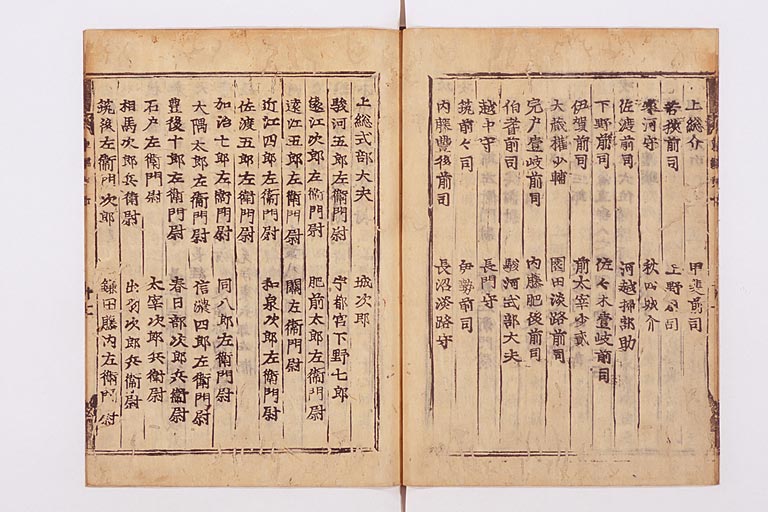 上総介 甲斐前司
若狭前司 上野前司
寒河守 秋田城介
佐渡前司 河越掃部助
下野前司 佐々木壹岐前司
伊賀前司 前太宰少貳
大蔵權少輔 園田淡路前司
宍戸壹岐前司 内藤肥後前司
伯耆前司 駿河式部大夫
越中守 長門守
筑前々司 伊勢前司
内藤豊後前司 長沼淡路守
上総式部大夫 城次郎
駿河五郎左衛門尉 宇都宮下野七郎
遠江次郎左衛門尉 肥前太郎左衛門尉
遠江五郎左衛門尉 關左衛門尉
近江四郎左衛門尉 和泉次郎左衛門尉
佐渡五郎左衛門尉
加治七郎左衛門尉 同八郎左衛門尉
大隅太郎左衛門尉 信濃四郎左衛門尉
豊後十郎左衛門尉 春日部次郎兵衛尉
石戸左衛門尉 太宰次郎兵衛尉
相馬次郎兵衛尉 出羽次郎兵衛尉
筑後左衛門次郎 鎌田藤内左衛門尉